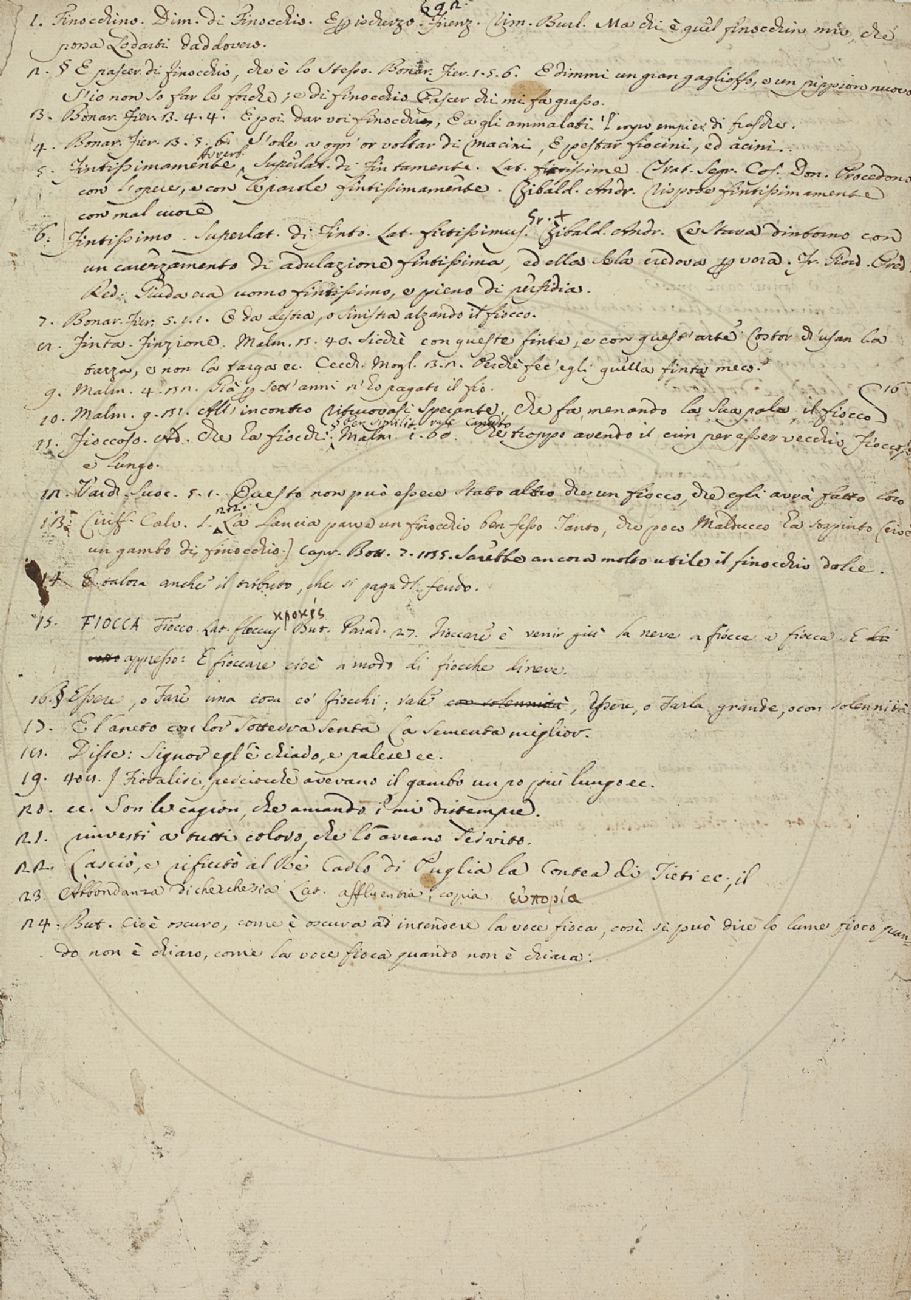 1. Finocchino. Dim. di Finocchio. E p ischerzo. Firenz. Rim. Burl. Ma chi è quel finocchin mio, che
possa Lodarti daddovero.
2. § E pascer di finocchio, che è lo stesso. Bonar. Fier. 1. 5. 6. E dimmi un gran gaglioffo, e un pippion nuovo
S'io non so far le fiche; e di finocchio Pascer chi mi fa grasso.
3. Bonar. Fier. 3. 4. 4. E poi dar voi finocchi, E agli ammalati 'l corpo empier di frasche.
4. Bonar. Fier. 3. 5. 6. S'ode a ogn'or voltar di macini, E pestar fiocini, ed acini.
5. Fintissimamente Avverb. Superlat. di Fintamente. Lat. fictissime. Trat. Segr. Cos. Don. Procedono
con l'opere, e con le parole fintissimamente. Zibald. Andr. Rispose fintissimamente
con mal cuore
6. Fintissimo. Superlat. di Finto. Lat. fictissimus. Gr. + Zibald. Andr. Le stava dintorno con
un carezzamento di adulazione fintissima, ed ella sela credeva p vera. Fr. Giord. Pred.
Red. Giuda era uomo fintissimo, e pieno di perfidia.
7. Bonar. Fier. 5. 1. 1. E da destra, o sinistra alzando il fiocco.
8. Finta. Finzione. Malm. 11. 40. Sicchè con queste finte, e con quest'arte Costor ch'usan la
tazza, e non la targa ec. Cecch. Mogl. 3. 2. Perchè fec'egli quella finta meco?
9. Malm. 4. 12. Già p sett'anni n'ho pagati il fio.
10. Malm. 9. 51. All'incontro ritruovasi Sperante, Che fa menando la sua pala il fiocco 16
11. Fioccoso. Ad. Che ha fiocchi. Malm. 1. 60. Che troppo avendo il crin per esser vecchio, Fioccoso
e lungo.
12. Vard. Suoc. 5. 1. Questo non può essere stato altro che un fiocco, che egli avrà fatto loro
13. Ciriff. Calv. 1. 22. La Lancia parve un finocchio ben fesso Tanto, che poco Malducco ha sospinto (cioè
un gambo di finocchio.) Capr. Bott. 7. 135. Sarebbe ancora molto utile il finocchio dolce.
14. E talora anche il tributo, che si paga dl. feudo.
15. FIOCCA Fiocco. Lat. floccus κροκίς But. Parad. 27. Fioccare è venir giù la neve a fiocca a fiocca. E
appresso: E fioccare cioè a modo di fiocche di neve.
16. § Essere, o Fare una cosa co' fiocchi; vale con solennità, Essere, o Farla grande, o con solennità
17. E l'aneto con lor Sotterra senta La sementa miglior.
18. Disse: Signor egl'è chiaro, e palese ec.
19. 401. Fioralisi, perciocchè avevano il gambo un po più lungo ec.
20. ec. Son le cagion, che amando i' mi distempre.
21. rinvestì a tutti coloro, che lo aveano servito.
22. Lasciò, e rifiutò al Rè Carlo di Puglia la Contea di Tieti ec., il
23. Abbondanza Dichecchesia Lat. affluentia, copia εὐπορία
24. But. Cioè oscuro, come è oscura ad intendere la voce fioca, così si può dire lo lume fioco quan-
do non è chiaro, come la voce fioca quando non è chiara: